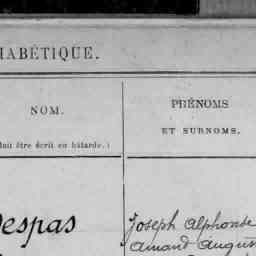 HABÉTIQUE.
NOM.
doit être écrit en bâtarde.)
PRÉNOMS
ET SURNOMS.
Despas
Joseph Alphonse
Amand Augus